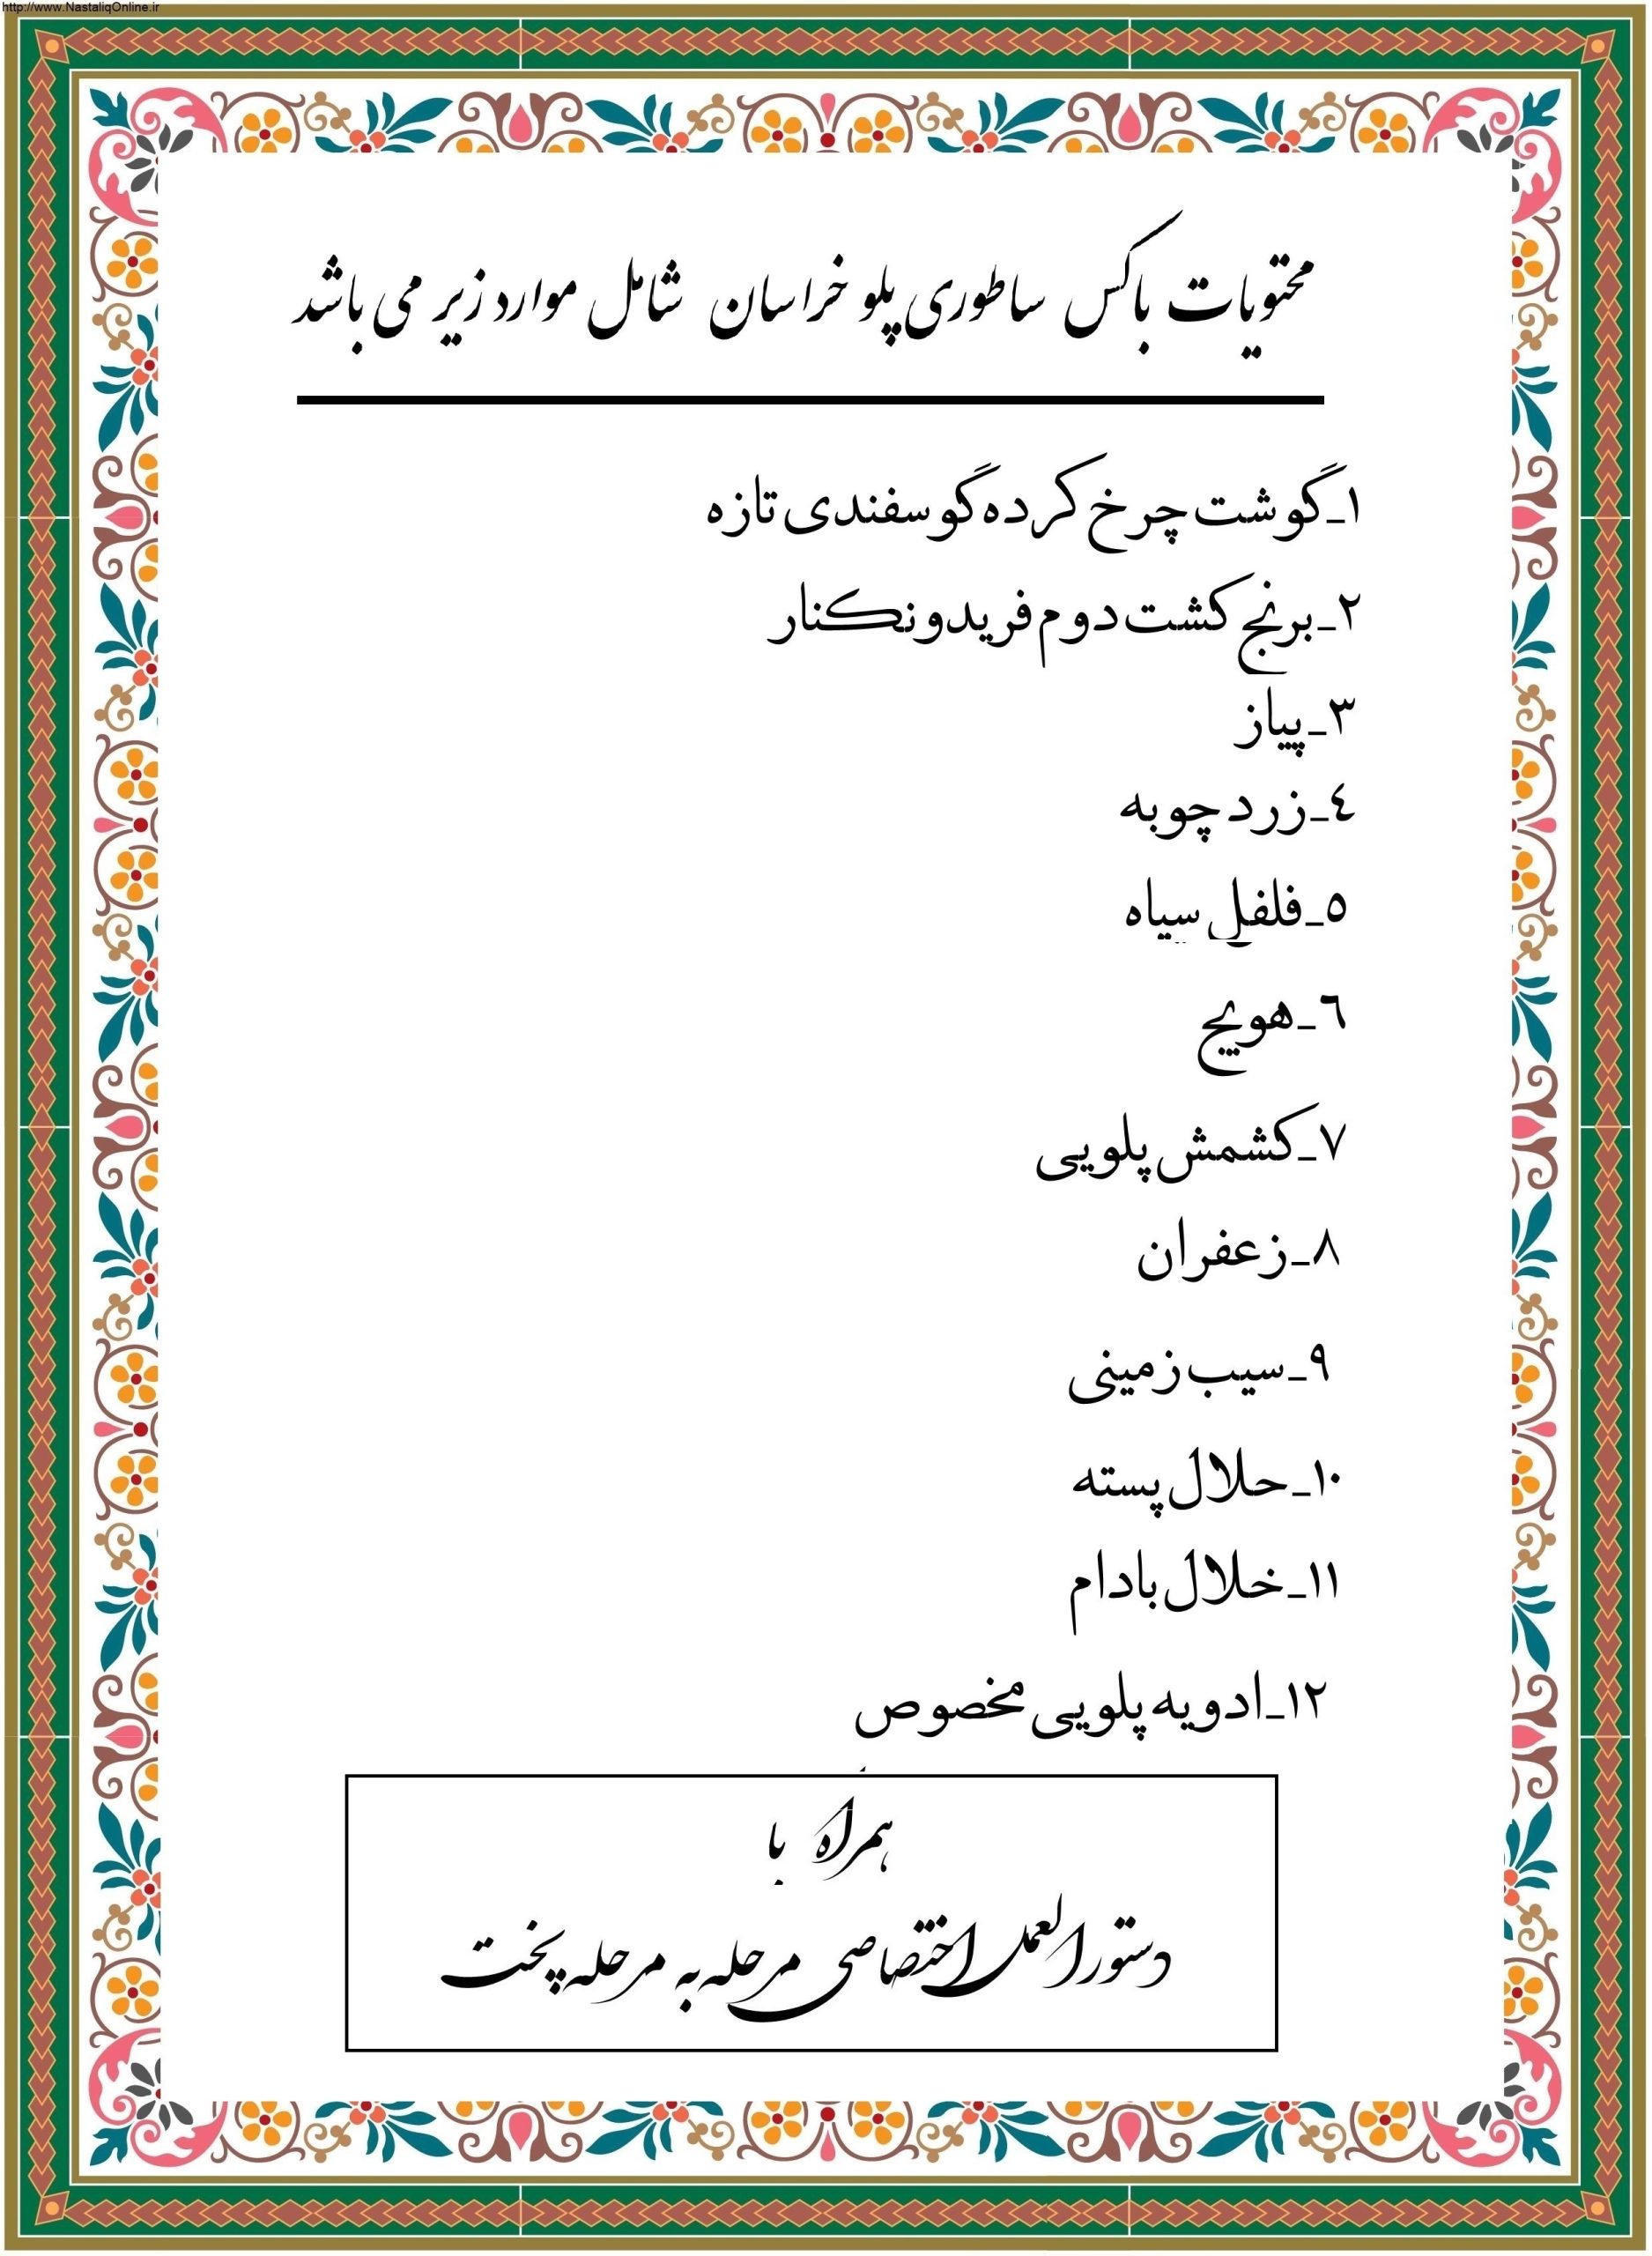 http://www.NastaliqOnline.ir
محتویات باکس ساطوری پلو خراسان شامل موارد زیر می باشد
۱_گوشت چرخ کرده گوسفندی تازه
۲_برنج کشت دوم فریدونکنار
۳_پیاز
٤_زردچوبه
٥_فلفل سیاه
٦_هویج
۷_کشمش پلویی
۸_زعفران
۹_سیب زمینی
۱۰_حلال پسته
۱۱_خلال بادام
۱۲_ادویه پلویی مخصوص
همراه با
دستورالعمل اختصاصی مرحله به مرحله پخت